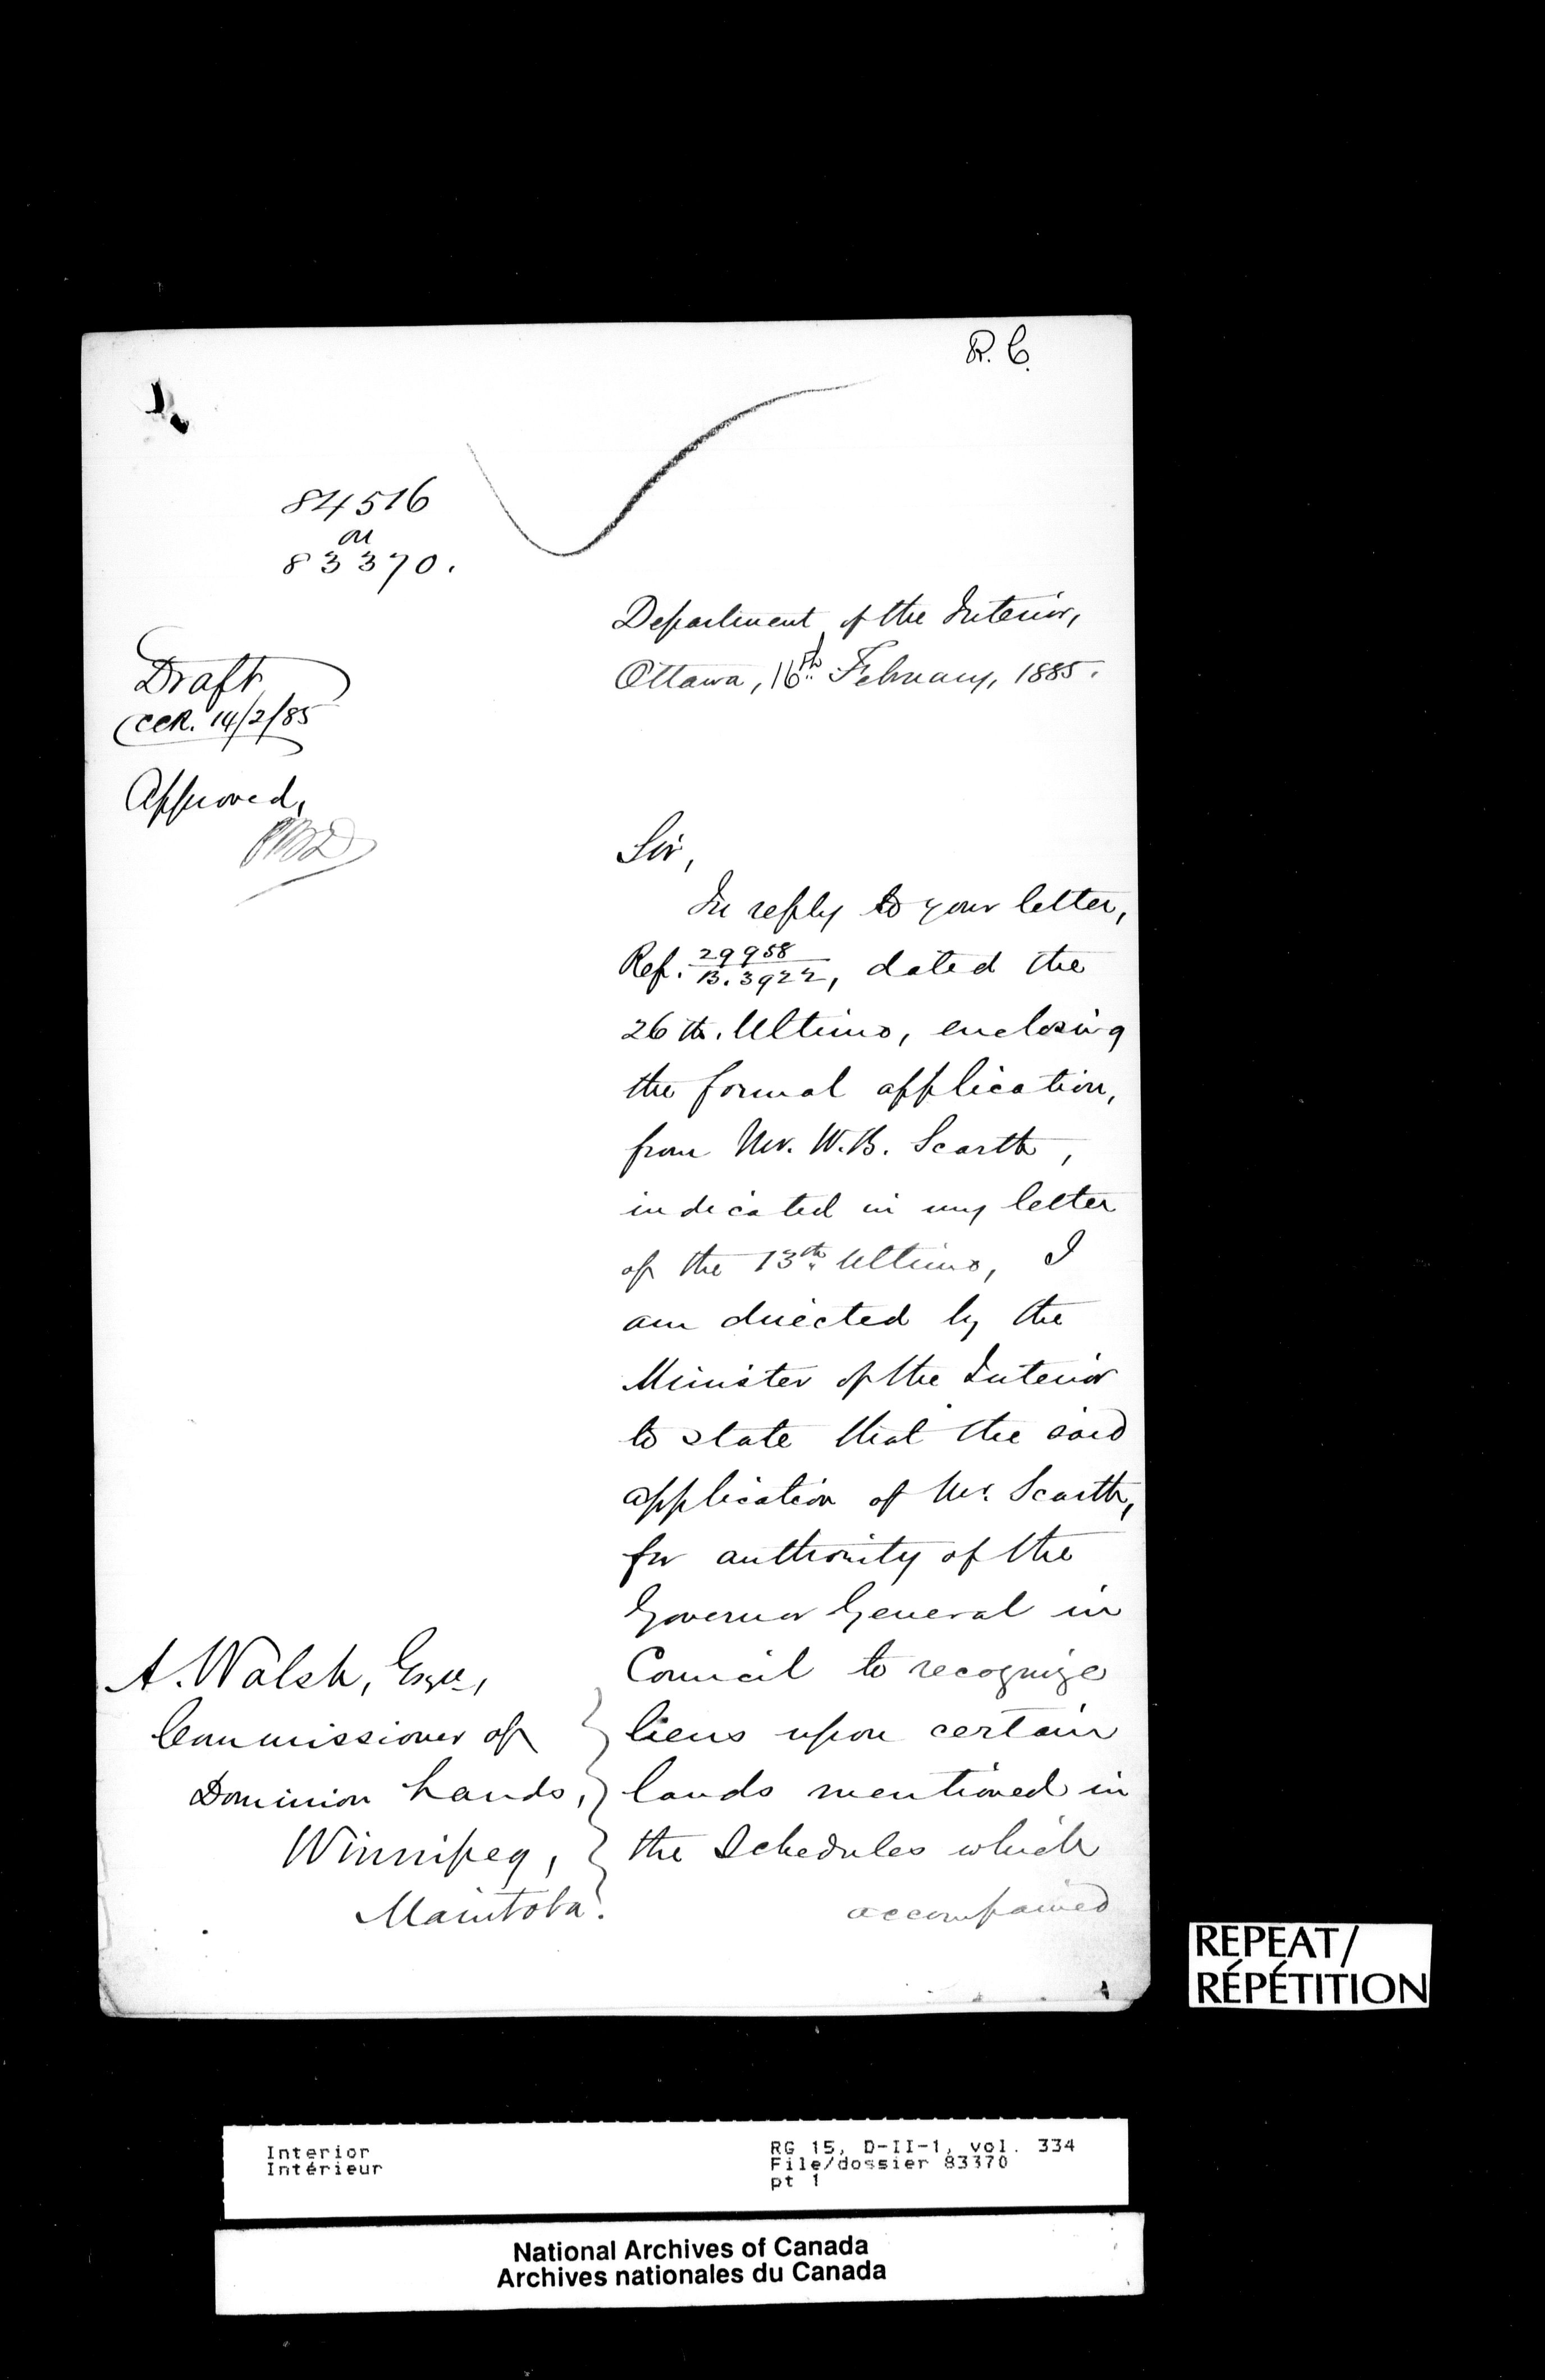 R. C.
84516
on
83370.
Department of the Interior,
Ottawa, 16th February, 1885.
Draft
CCR. 14/2/85
Approved,
Sir,
In reply to your letter,
Ref. 29958
B. 3922, dated the
26th. Ultimo, enclosing
the formal application,
from Mr. W. B. Scarth,
indicated in my letter
of the 13th Ultimo, I
am directed by the
Minister of the Interior
to state that the said
application of Mr. Scarth,
for authority of the
Governor General in
Council to recognize
liens upon certain
lands mentioned in
the Schedules which
accompanied
A. Walsh, Esqre,
Commissioner of
Dominion Lands,
Winnipeg,
Manitoba.
REPEAT/
RÉPÉTITION
Interior
Intérieur
RG 15, D-II-1, vol. 334
File/dossier 83370
pt 1
National Archives of Canada
Archives nationales du Canada